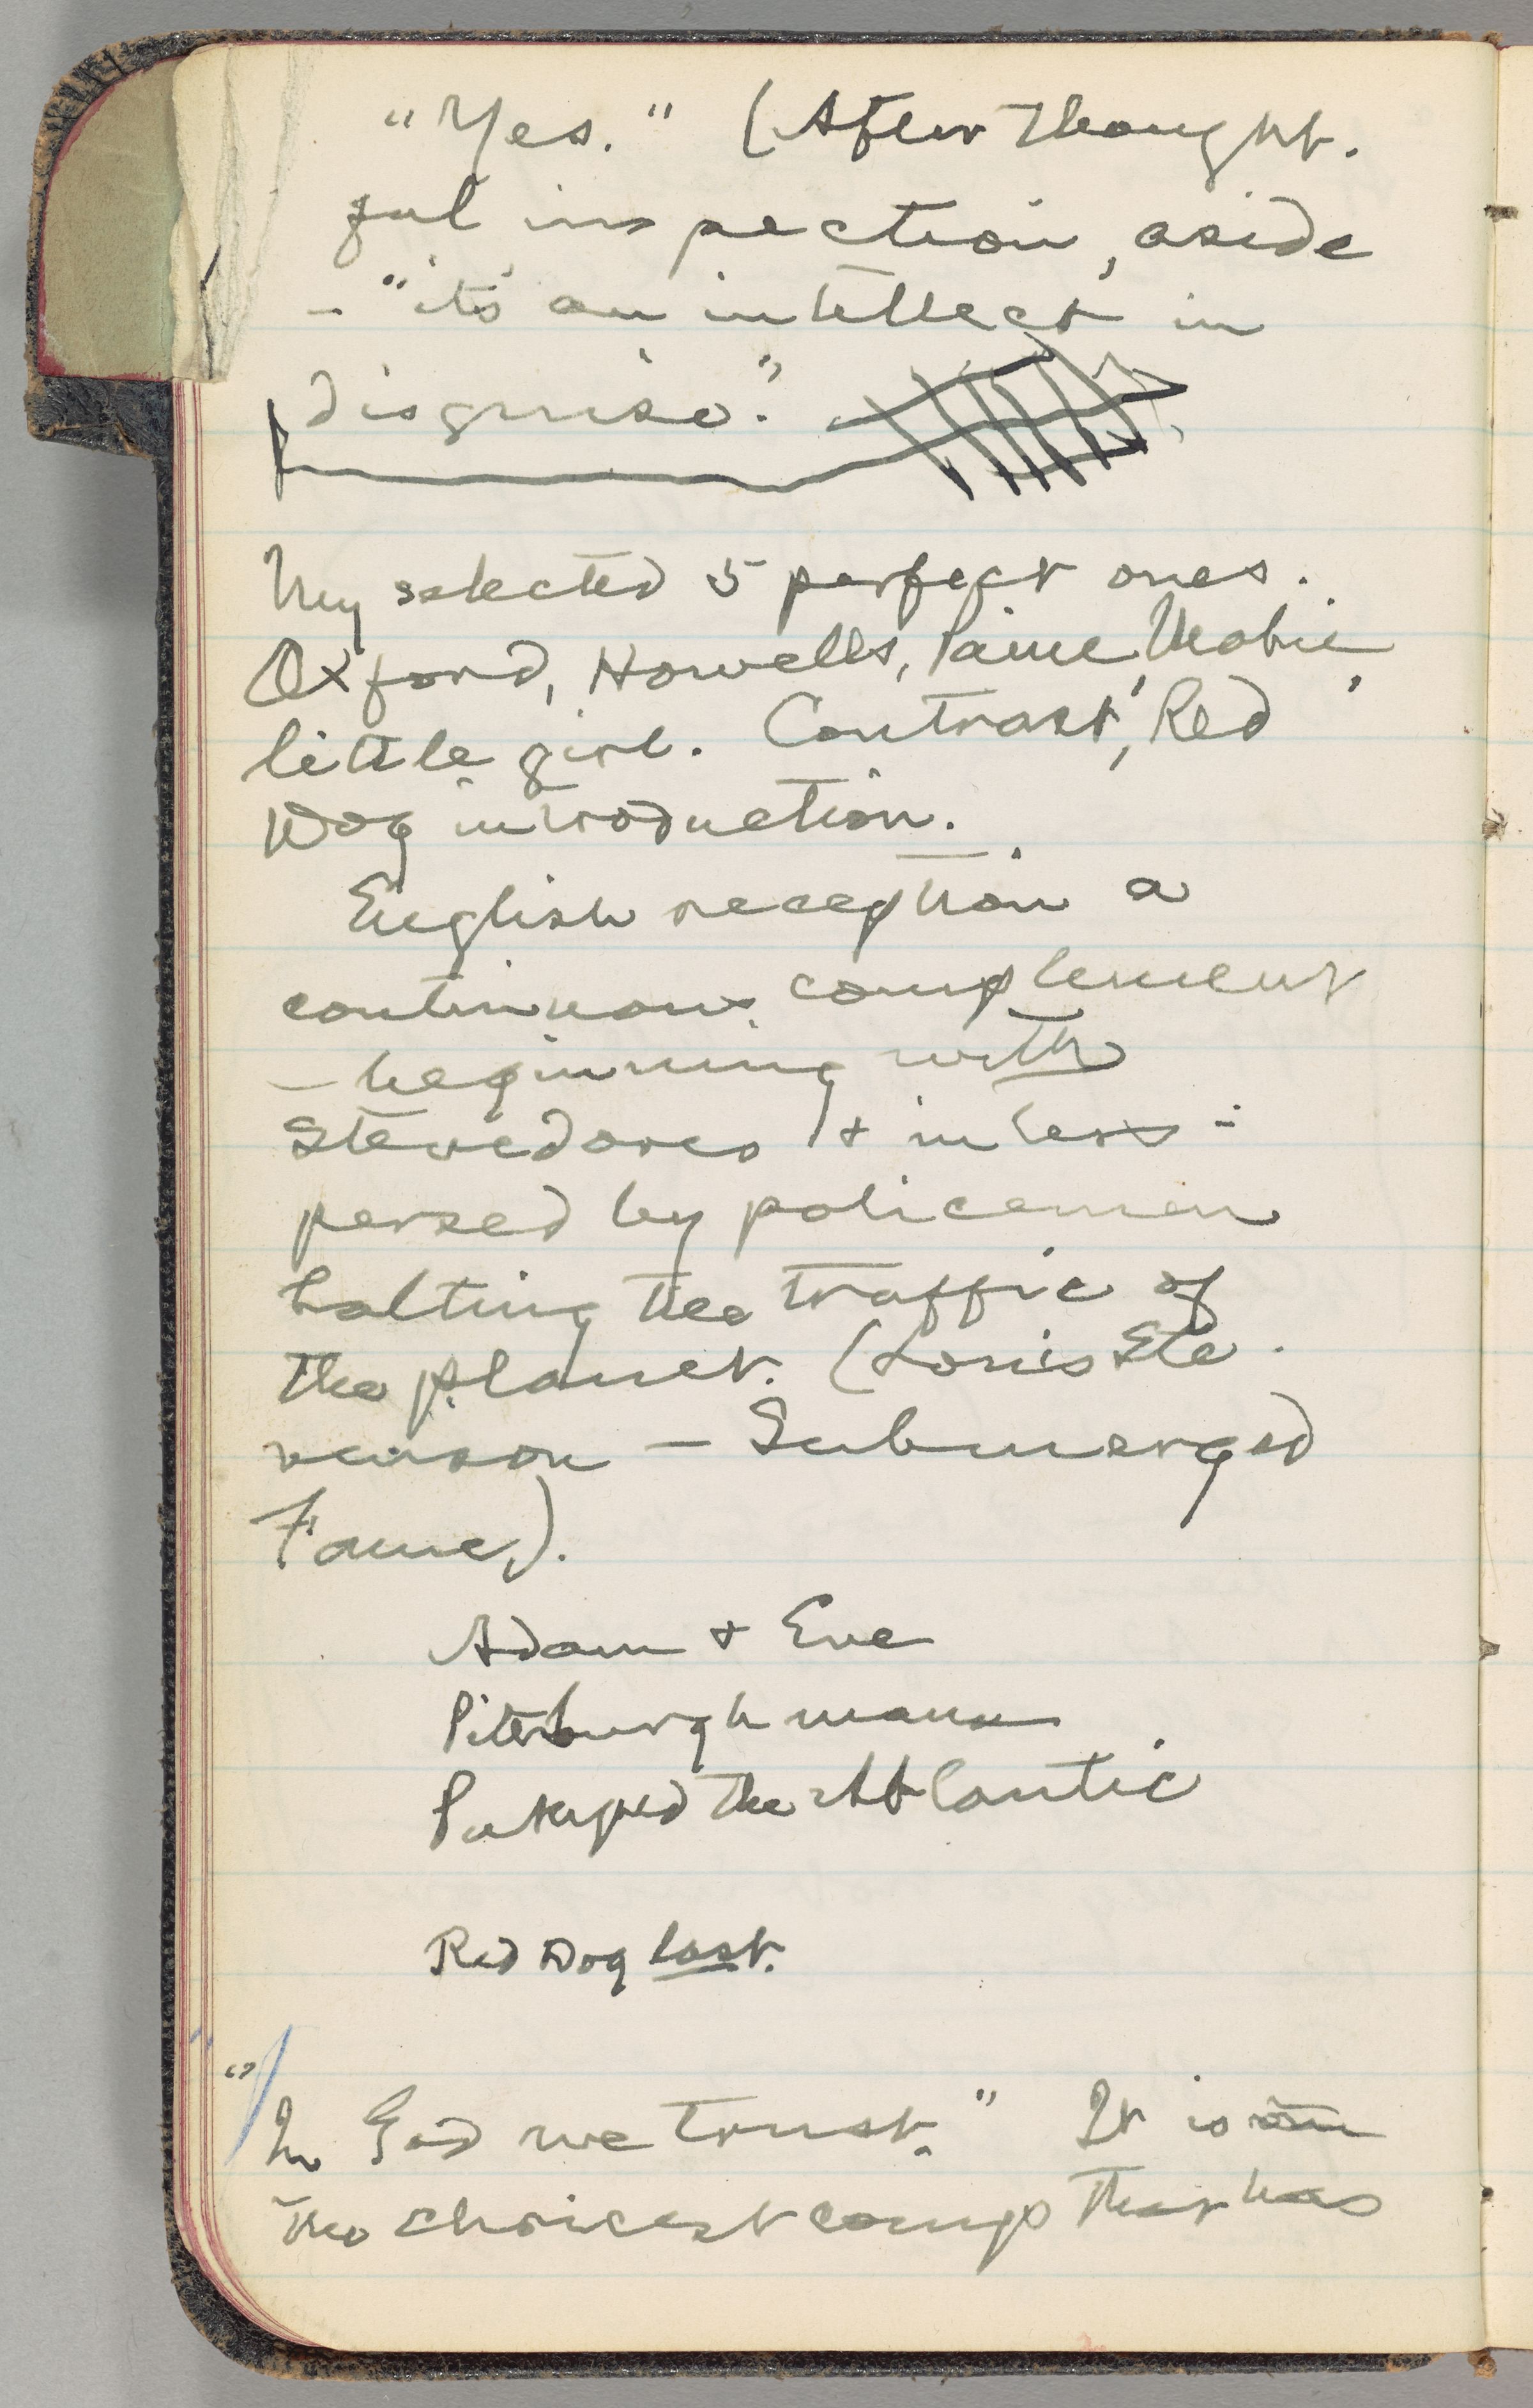 "Yes." (After thought-
ful inspection, aside
— "it's an intellect in
disguise."
My selected 5 perfect ones.
Oxford, Howells, Paine, Mabie,
little girl. Contrast, Red
Dog introduction.
English reception a
continuous complement
— beginning with
stevedores & inters-
persed by policemen
halting the traffic of
the planet. (Louis Ste-
venson — Submerged
Fame).
Adam & Eve
Pittsburgh man
the Atlantic
Red Dog last.
"In God we trust." It is
the choicest comp that has